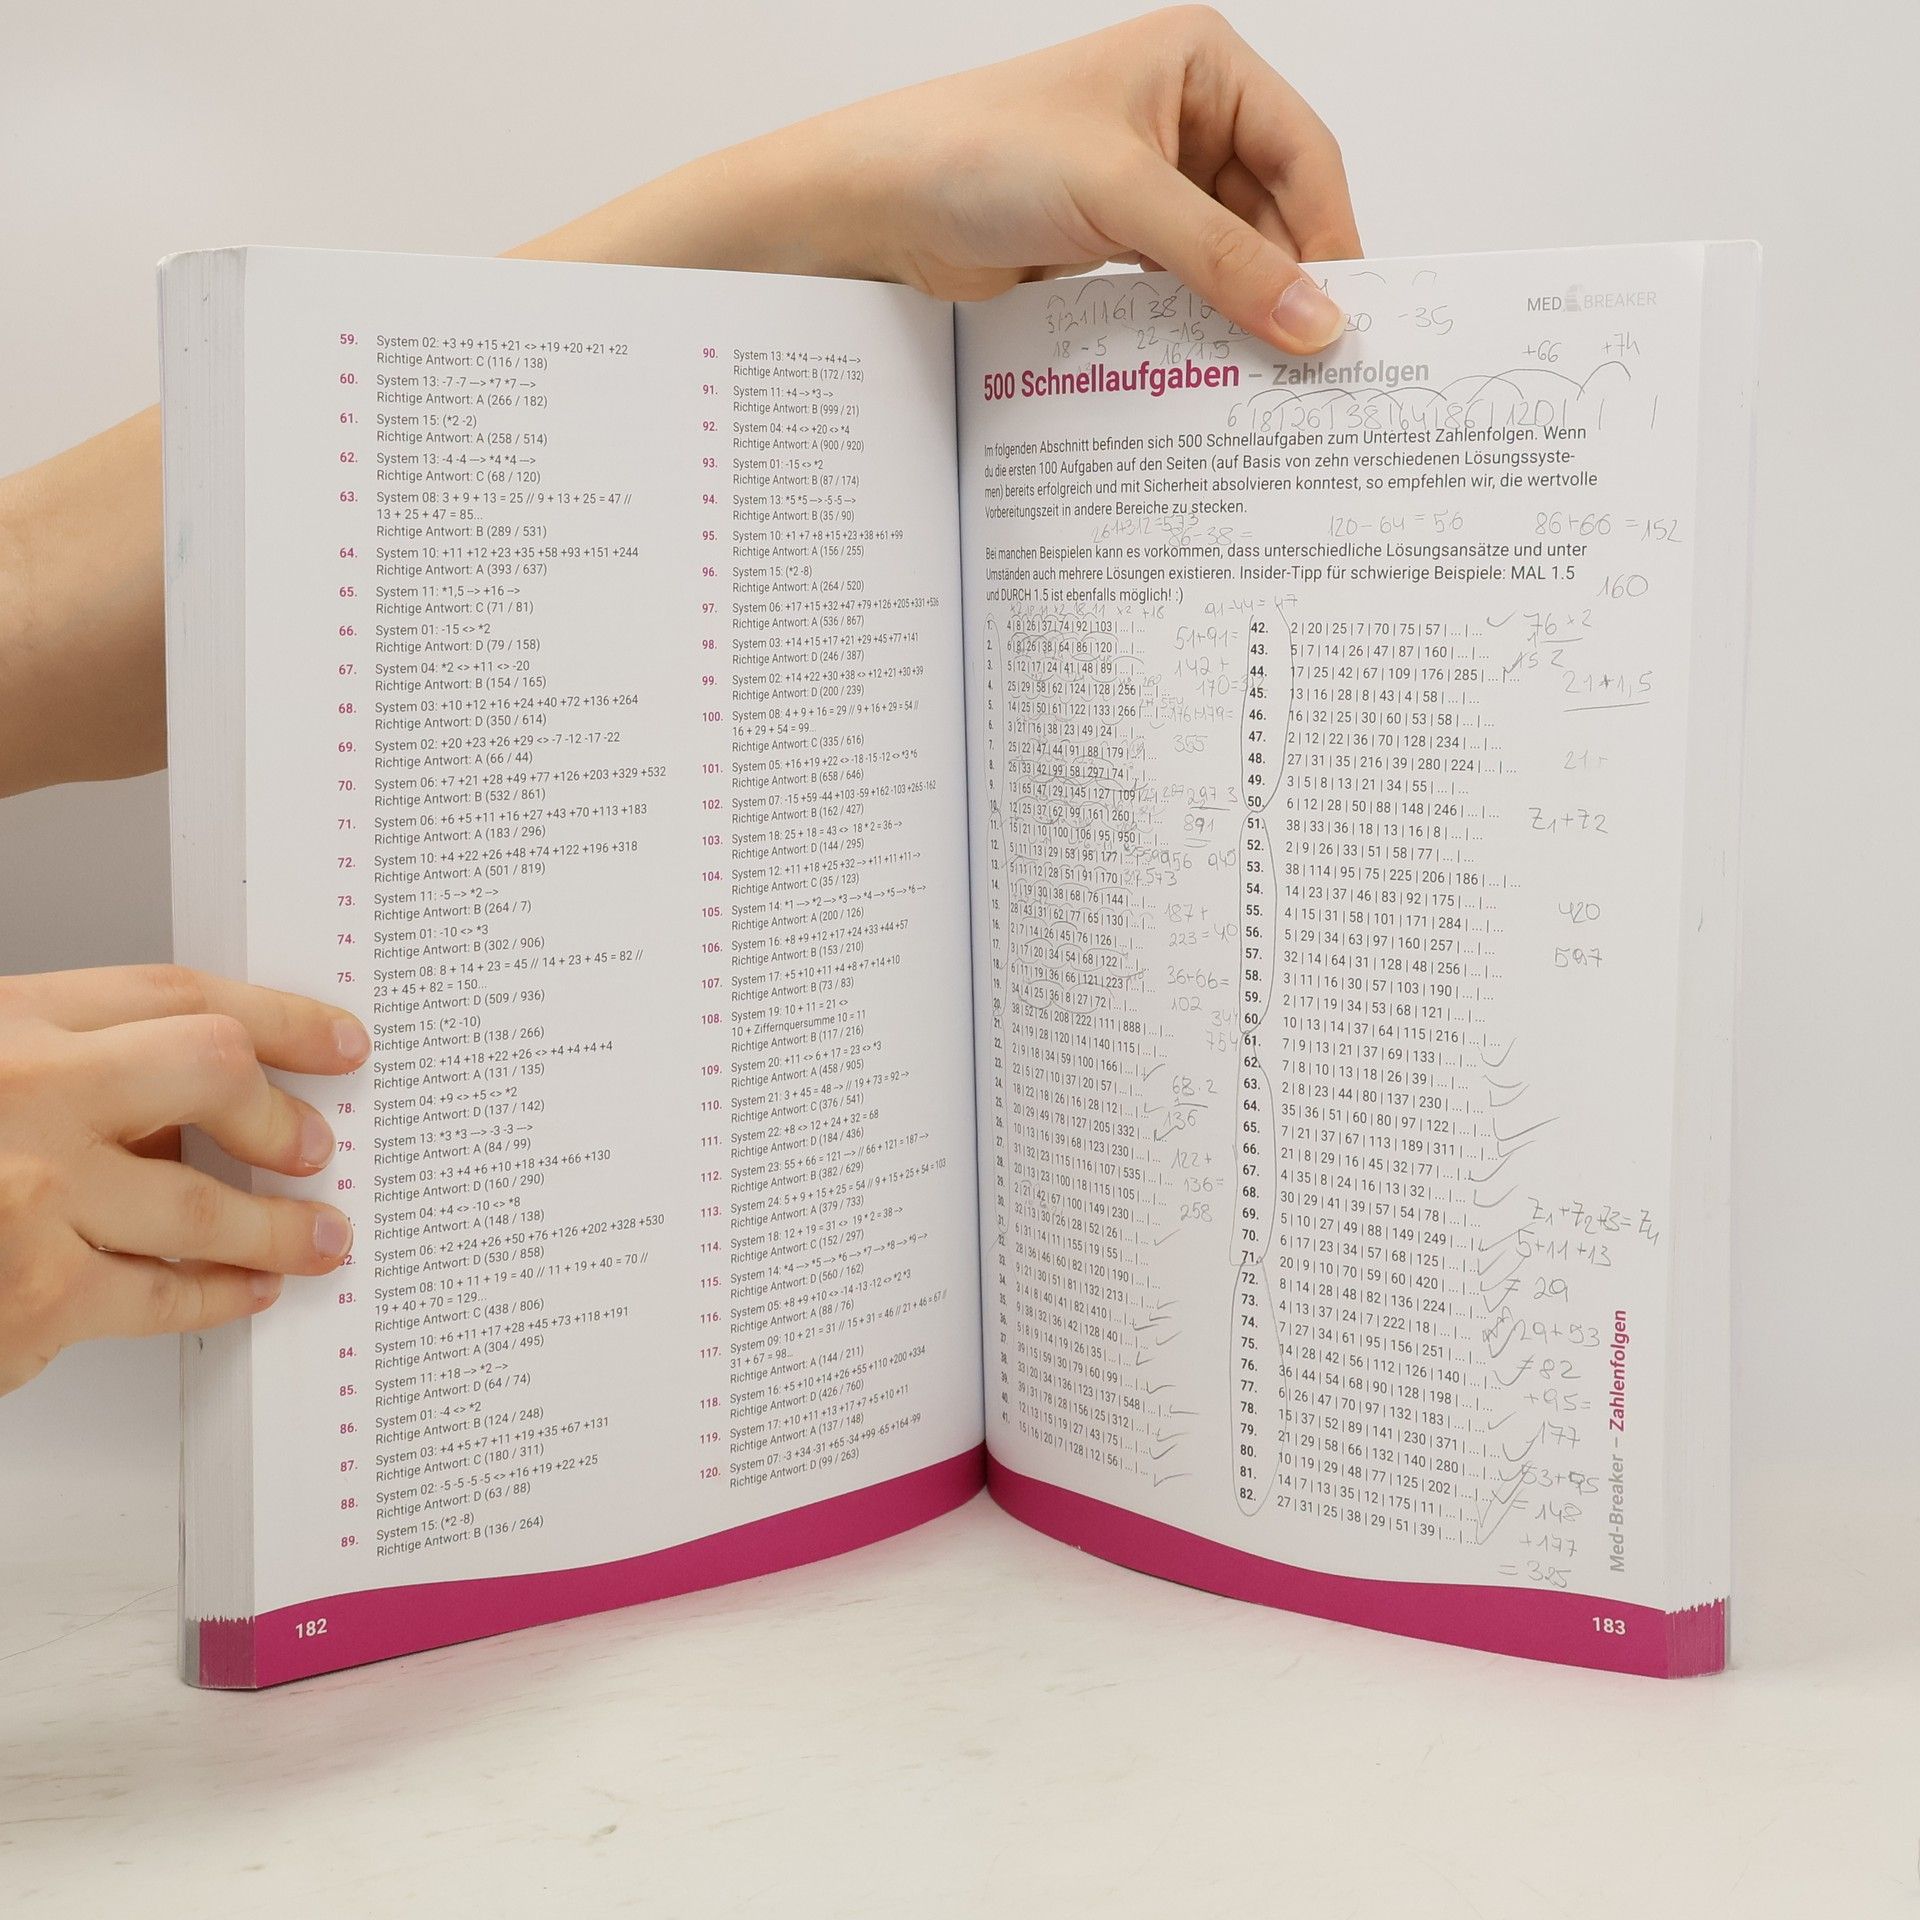 59. System 02: +3 +9 +15 +21 <> +19 +20 +21 +22
Richtige Antwort: C (116 / 138)
60. System 13: -7 -7 —> *7 *7 —>
Richtige Antwort: A (266 / 182)
61. System 15: (*2 -2)
Richtige Antwort: A (258 / 514)
62. System 13: -4 -4 —> *4 *4 —>
Richtige Antwort: C (68 / 120)
63. System 08: 3 + 9 + 13 = 25 // 9 + 13 + 25 = 47 //
13 + 25 + 47 = 85...
Richtige Antwort: B (289 / 531)
64. System 10: +11 +12 +23 +35 +58 +93 +151 +244
Richtige Antwort: A (393 / 637)
65. System 11: *1,5 —> +16 —>
Richtige Antwort: C (71 / 81)
66. System 01: -15 <> *2
Richtige Antwort: D (79 / 158)
67. System 04: *2 <> +11 <> -20
Richtige Antwort: B (154 / 165)
68. System 03: +10 +12 +16 +24 +40 +72 +136 +264
Richtige Antwort: D (350 / 614)
69. System 02: +20 +23 +26 +29 <> -7 -12 -17 -22
Richtige Antwort: A (66 / 44)
70. System 06: +7 +21 +28 +49 +77 +126 +203 +329 +532
Richtige Antwort: B (532 / 861)
71. System 06: +6 +5 +11 +16 +27 +43 +70 +113 +183
Richtige Antwort: A (183 / 296)
72. System 10: +4 +22 +26 +48 +74 +122 +196 +318
Richtige Antwort: A (501 / 819)
73. System 11: -5 —> *2 —>
Richtige Antwort: B (264 / 7)
74. System 01: -10 <> *3
Richtige Antwort: B (302 / 906)
75. System 08: 8 + 14 + 23 = 45 // 14 + 23 + 45 = 82 //
23 + 45 + 82 = 150...
Richtige Antwort: D (509 / 936)
System 15: (*2 -10)
Richtige Antwort: B (138 / 266)
System 02: +14 +18 +22 +26 <> +4 +4 +4 +4
Richtige Antwort: A (131 / 135)
78. System 04: +9 <> +5 <> *2
Richtige Antwort: D (137 / 142)
79. System 13: *3 *3 —> -3 -3 —>
Richtige Antwort: A (84 / 99)
80. System 03: +3 +4 +6 +10 +18 +34 +66 +130
Richtige Antwort: D (160 / 290)
System 04: +4 <> -10 <> *8
Richtige Antwort: A (148 / 138)
System 06: +2 +24 +26 +50 +76 +126 +202 +328 +530
Richtige Antwort: D (530 / 858)
83. System 08: 10 + 11 + 19 = 40 // 11 + 19 + 40 = 70 //
19 + 40 + 70 = 129...
Richtige Antwort: C (438 / 806)
84. System 10: +6 +11 +17 +28 +45 +73 +118 +191
Richtige Antwort: A (304 / 495)
85. System 11: +18 —> *2 —>
Richtige Antwort: D (64 / 74)
86. System 01: -4 <> *2
Richtige Antwort: B (124 / 248)
87. System 03: +4 +5 +7 +11 +19 +35 +67 +131
Richtige Antwort: C (180 / 311)
88. System 02: -5 -5 -5 -5 <> +16 +19 +22 +25
Richtige Antwort: D (63 / 88)
89. System 15: (*2 -8)
Richtige Antwort: B (136 / 264)
182
90. System 13: *4 *4 —> +4 +4 —>
Richtige Antwort: B (172 / 132)
91. System 11: +4 —> *3 —>
Richtige Antwort: B (999 / 21)
92. System 04: +4 <> +20 <> *4
Richtige Antwort: A (900 / 920)
93. System 01: -15 <> *2
Richtige Antwort: B (87 / 174)
94. System 13: *5 *5 —> -5 -5 —>
Richtige Antwort: B (35 / 90)
95. System 10: +1 +7 +8 +15 +23 +38 +61 +99
Richtige Antwort: A (156 / 255)
96. System 15: (*2 -8)
Richtige Antwort: A (264 / 520)
97. System 06: +17 +15 +32 +47 +79 +126 +205 +331 +536
Richtige Antwort: A (536 / 867)
98. System 03: +14 +15 +17 +21 +29 +45 +77 +141
Richtige Antwort: D (246 / 387)
99. System 02: +14 +22 +30 +38 <> +12 +21 +30 +39
Richtige Antwort: D (200 / 239)
100. System 08: 4 + 9 + 16 = 29 // 9 + 16 + 29 = 54 //
16 + 29 + 54 = 99...
Richtige Antwort: C (335 / 616)
101. System 05: +16 +19 +22 <> -18 -15 -12 <> *3 *6
Richtige Antwort: B (658 / 646)
102. System 07: -15 +59 -44 +103 -59 +162 -103 +265 -162
Richtige Antwort: B (162 / 427)
103. System 18: 25 + 18 = 43 <> 18 * 2 = 36 —>
Richtige Antwort: D (144 / 295)
104. System 12: +11 +18 +25 +32 —> +11 +11 +11 —>
Richtige Antwort: C (35 / 123)
105. System 14: *1 —> *2 —> *3 —> *4 —> *5 —> *6 —>
Richtige Antwort: A (200 / 126)
106. System 16: +8 +9 +12 +17 +24 +33 +44 +57
Richtige Antwort: B (153 / 210)
107. System 17: +5 +10 +11 +4 +8 +7 +14 +10
Richtige Antwort: B (73 / 83)
108. System 19: 10 + 11 = 21 <>
10 + Ziffernquersumme 10 = 11
Richtige Antwort: B (117 / 216)
109. System 20: +11 <> 6 + 17 = 23 <> *3
Richtige Antwort: A (458 / 905)
110. System 21: 3 + 45 = 48 —> // 19 + 73 = 92 —>
Richtige Antwort: C (376 / 541)
111. System 22: +8 <> 12 + 24 + 32 = 68
Richtige Antwort: D (184 / 436)
112. System 23: 55 + 66 = 121 —> // 66 + 121 = 187 —>
Richtige Antwort: B (382 / 629)
113. System 24: 5 + 9 + 15 + 25 = 54 // 9 + 15 + 25 + 54 = 103
Richtige Antwort: A (379 / 733)
114. System 18: 12 + 19 = 31 <> 19 * 2 = 38 —>
Richtige Antwort: C (152 / 297)
115. System 14: *4 —> *5 —> *6 —> *7 —> *8 —> *9 —>
Richtige Antwort: D (560 / 162)
116. System 05: +8 +9 +10 <> -14 -13 -12 <> *2 *3
Richtige Antwort: A (88 / 76)
117. System 09: 10 + 21 = 31 // 15 + 31 = 46 // 21 + 46 = 67 //
31 + 67 = 98...
Richtige Antwort: A (144 / 211)
118. System 16: +5 +10 +14 +26 +55 +110 +200 +334
Richtige Antwort: D (426 / 760)
119. System 17: +10 +11 +13 +17 +7 +5 +10 +11
Richtige Antwort: A (137 / 148)
120. System 07: -3 +34 -31 +65 -34 +99 -65 +164 -99
Richtige Antwort: D (99 / 263)
MED BREAKER
-35
+66 +74
500 Schnellaufgaben – Zahlenfolgen
6 | 8 | 26 | 38 | 64 | 86 | 120 | | |
Im folgenden Abschnitt befinden sich 500 Schnellaufgaben zum Untertest Zahlenfolgen. Wenn
du die ersten 100 Aufgaben auf den Seiten (auf Basis von zehn verschiedenen Lösungssyste-
men) bereits erfolgreich und mit Sicherheit absolvieren konntest, so empfehlen wir, die wertvolle
Vorbereitungszeit in andere Bereiche zu stecken.
261+312=573 86-38= 120-64=56 86+66=152
Bei manchen Beispielen kann es vorkommen, dass unterschiedliche Lösungsansätze und unter
Umständen auch mehrere Lösungen existieren. Insider-Tipp für schwierige Beispiele: MAL 1.5
und DURCH 1.5 ist ebenfalls möglich! :)
160
91-44=47
1. 4|8|26|37|74|92|103|...|...
2. 6|8|26|38|64|86|120|...|...
3. 5|12|17|24|41|48|89|...|...
4. 25|29|58|62|124|128|256|...|...
5. 14|25|50|61|122|133|266|...|...
6. 3|21|16|38|23|49|24|...|...
7. 25|22|47|44|91|88|179|...|...
8. 26|33|42|99|58|297|74|...|...
9. 13|65|47|29|145|127|109|...|...
10. 12|25|37|62|99|161|260|...|...
11. 15|21|10|100|106|95|950|...|...
12. 5|11|13|29|53|95|177|...|...
13. 5|11|12|28|51|91|170|...|...
14. 11|19|30|38|68|76|144|...|...
15. 28|43|31|62|77|65|130|...|...
16. 2|7|14|26|45|76|126|...|...
17. 3|17|20|34|54|68|122|...|...
18. 6|11|19|36|66|121|223|...|...
19. 34|4|25|36|8|27|72|...|...
20. 38|52|26|208|222|111|888|...|...
21. 24|19|28|120|14|140|115|...|...
22. 2|9|18|34|59|100|166|...|...
23. 22|5|27|10|37|20|57|...|...
24. 18|22|18|26|16|28|12|...|...
25. 20|29|49|78|127|205|332|...|...
26. 10|13|16|39|68|123|230|...|...
27. 31|32|23|115|116|107|535|...|...
28. 20|13|23|100|18|115|105|...|...
29. 2|21|42|67|100|149|230|...|...
30. 32|13|30|26|28|52|26|...|...
31. 6|31|14|11|155|19|55|...|...
32. 28|36|46|60|82|120|190|...|...
33. 9|21|30|51|81|132|213|...|...
34. 3|4|8|40|41|82|410|...|...
35. 9|38|32|36|42|128|40|...|...
36. 5|8|9|14|19|26|35|...|...
37. 39|15|59|30|79|60|99|...|...
38. 33|20|34|136|123|137|548|...|...
39. 39|31|78|28|156|25|312|...|...
40. 12|13|15|19|27|43|75|...|...
41. 15|16|20|7|128|12|56|...|...
51+91=
142+
355
891
187+
223=
36+66=
102
68·2
136
122+
136=
258
42. 2|20|25|7|70|75|57|...|...
43. 5|7|14|26|47|87|160|...|...
44. 17|25|42|67|109|176|285|...|...
45. 13|16|28|8|43|4|58|...|...
46. 16|32|25|30|60|53|58|...|...
47. 2|12|22|36|70|128|234|...|...
48. 27|31|35|216|39|280|224|...|...
49. 3|5|8|13|21|34|55|...|...
50. 6|12|28|50|88|148|246|...|...
51. 38|33|36|18|13|16|8|...|...
52. 2|9|26|33|51|58|77|...|...
53. 38|114|95|75|225|206|186|...|...
54. 14|23|37|46|83|92|175|...|...
55. 4|15|31|58|101|171|284|...|...
56. 5|29|34|63|97|160|257|...|...
57. 32|14|64|31|128|48|256|...|...
58. 3|11|16|30|57|103|190|...|...
59. 2|17|19|34|53|68|121|...|...
60. 10|13|14|37|64|115|216|...|...
61. 7|9|13|21|37|69|133|...|...
62. 7|8|10|13|18|26|39|...|...
63. 2|8|23|44|80|137|230|...|...
64. 35|36|51|60|80|97|122|...|...
65. 7|21|37|67|113|189|311|...|...
66. 21|8|29|16|45|32|77|...|...
67. 4|35|8|24|16|13|32|...|...
68. 30|29|41|39|57|54|78|...|...
69. 5|10|27|49|88|149|249|...|...
70. 6|17|23|34|57|68|125|...|...
71. 20|9|10|70|59|60|420|...|...
72. 8|14|28|48|82|136|224|...|...
73. 4|13|37|24|7|222|18|...|...
74. 7|27|34|61|95|156|251|...|...
75. 14|28|42|56|112|126|140|...|...
76. 36|44|54|68|90|128|198|...|...
77. 6|26|47|70|97|132|183|...|...
78. 15|37|52|89|141|230|371|...|...
79. 21|29|58|66|132|140|280|...|...
80. 10|19|29|48|77|125|202|...|...
81. 14|7|13|35|12|175|11|...|...
82. 27|31|25|38|29|51|39|...|...
76×2
152
21*1,5
Z1+Z2
420
597
Z1+Z2+Z3=Z4
5+11+13
= 29
29+53
= 82
+95=
177
53+95
= 148
+177
= 325
Med-Breaker – Zahlenfolgen
183